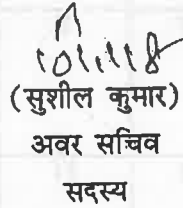 (सुशील कुमार)
अवर सचिव
सदस्य